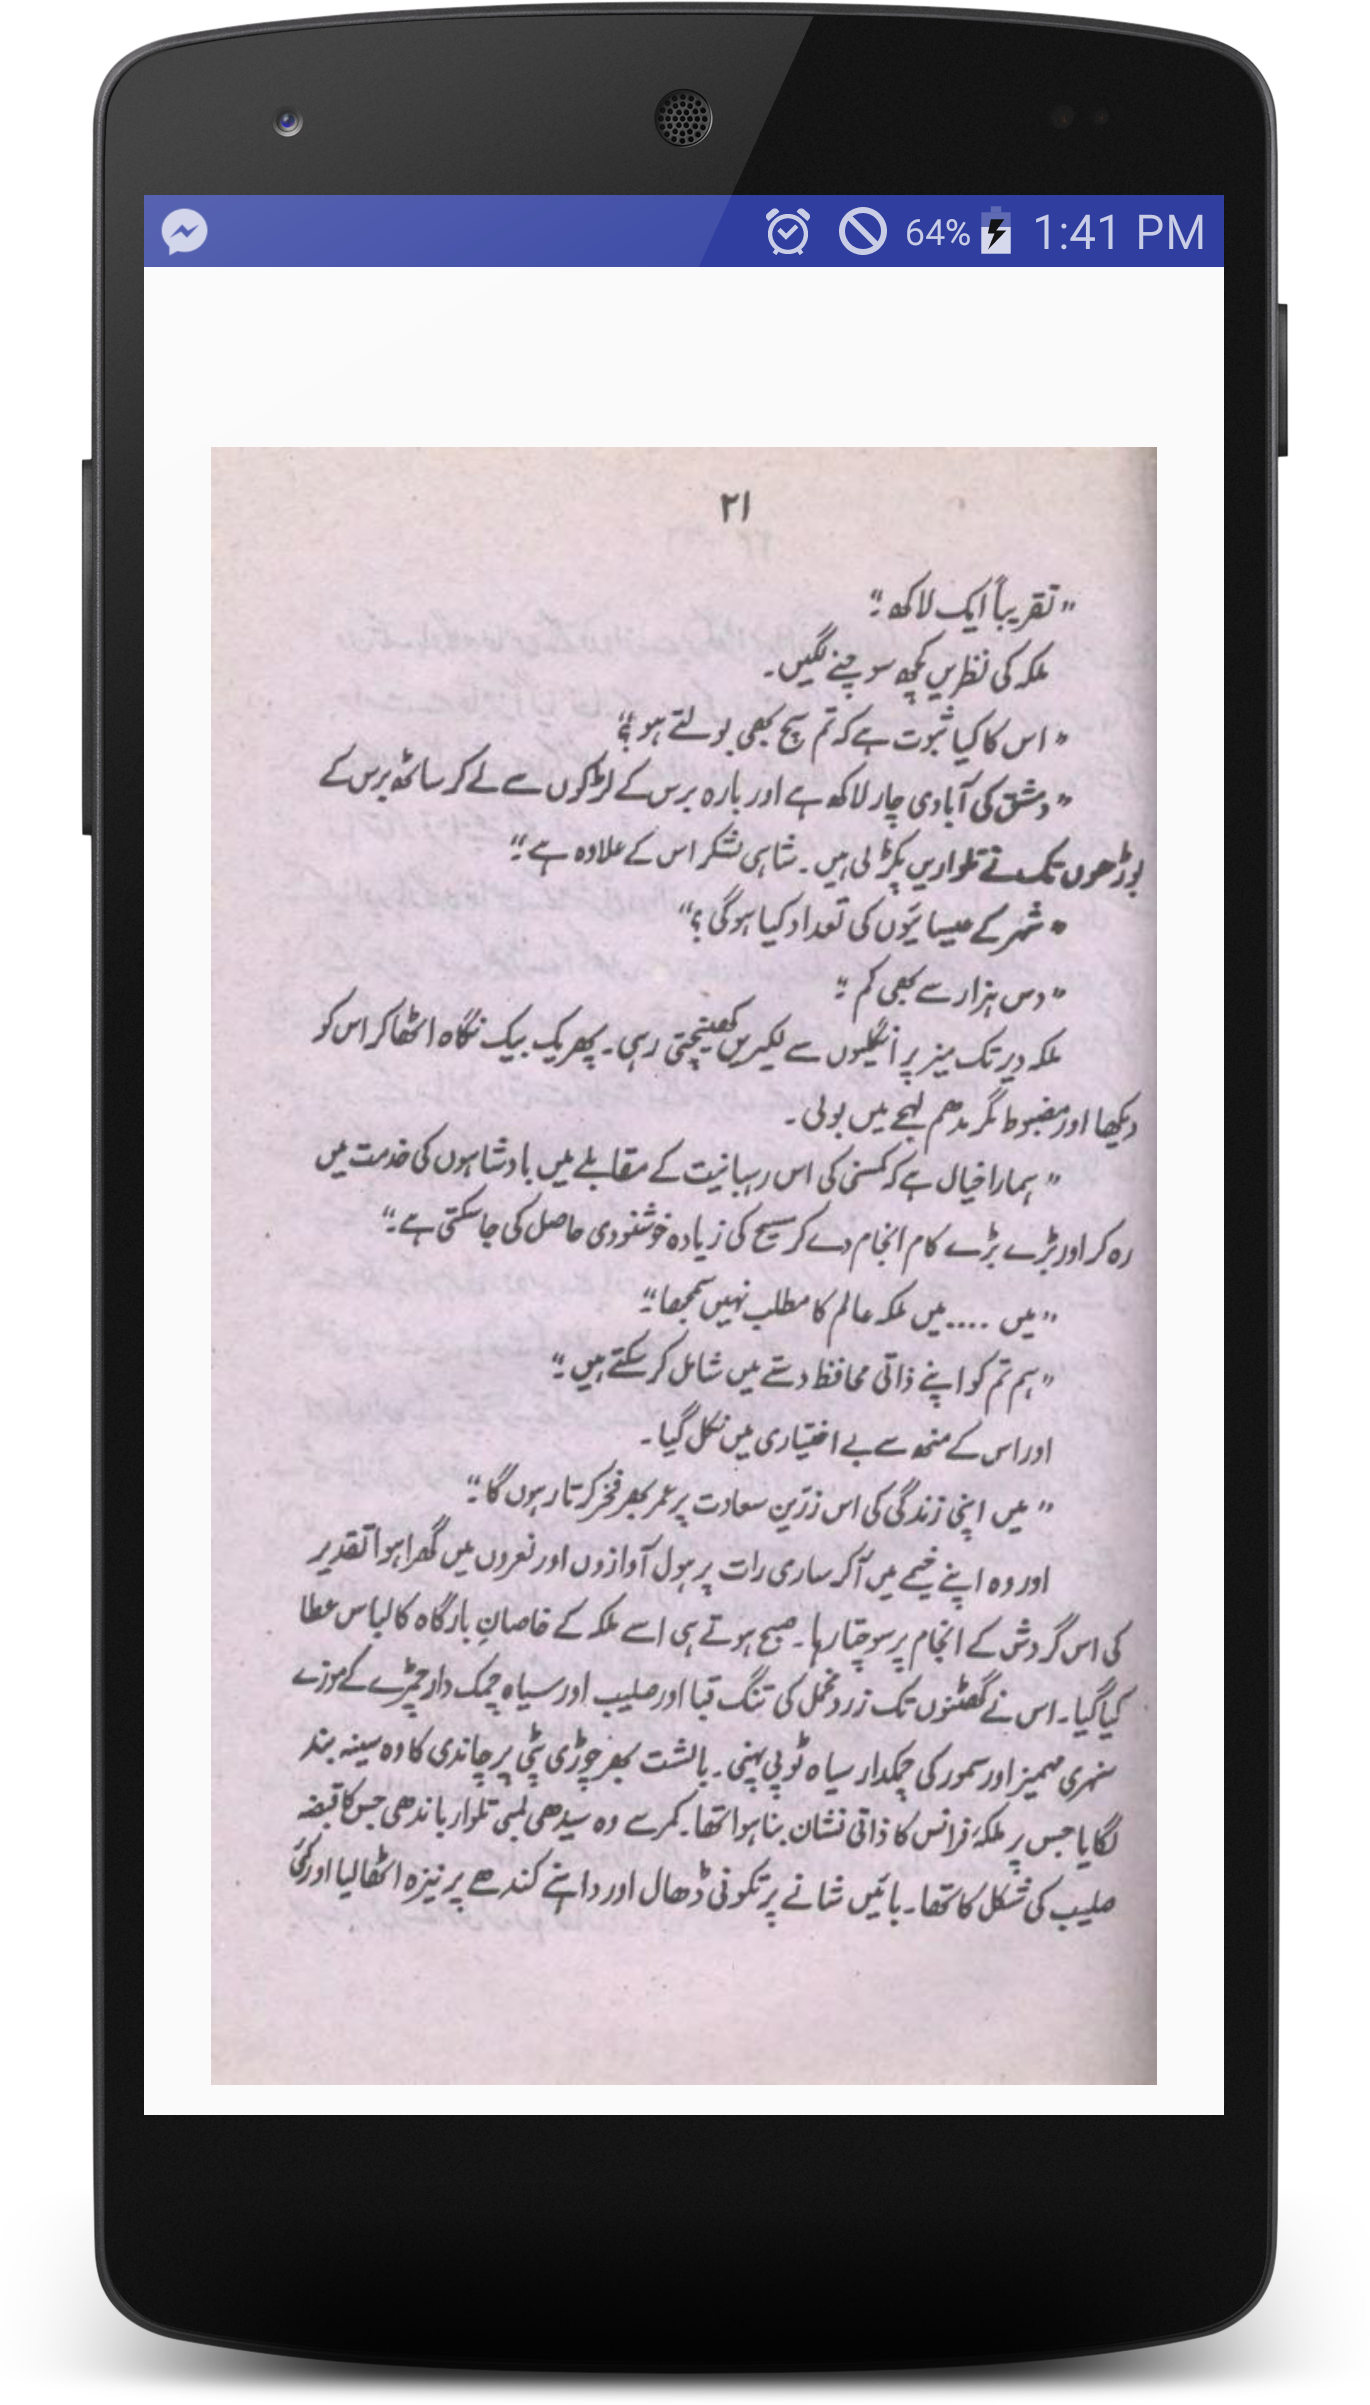 64% 1:41 PM
۲۱
”تقریباً ایک لاکھ“
ملکہ کی نظریں کچھ سوچنے لگیں۔
”اس کا کیا ثبوت ہے کہ تم سچ بھی بولتے ہو؟“
”دمشق کی آبادی چار لاکھ ہے اور بارہ برس کے لڑکوں سے لے کر ساٹھ برس کے
بوڑھوں تک نے تلواریں پکڑ لی ہیں۔ شاہی لشکر اس کے علاوہ ہے“
”شہر کے عیسائیوں کی تعداد کیا ہوگی؟“
”دس ہزار سے بھی کم“
ملکہ دیر تک میز پر انگلیوں سے لکیریں کھینچتی رہی۔ پھر یک بیک نگاہ اٹھا کر اس کو
دیکھا اور مضبوط مگر مدھم لہجے میں بولی۔
”ہمارا خیال ہے کہ کمسنی کی اس رہبانیت کے مقابلے میں بادشاہوں کی خدمت میں
رہ کر اور بڑے بڑے کام انجام دے کر مسیح کی زیادہ خوشنودی حاصل کی جا سکتی ہے“
”میں .... میں ملکہ عالم کا مطلب نہیں سمجھا“
”ہم تم کو اپنے ذاتی محافظ دستے میں شامل کر سکتے ہیں“
اور اس کے منھ سے بے اختیاری میں نکل گیا۔
”میں اپنی زندگی کی اس زرّین سعادت پر عمر بھر فخر کرتا رہوں گا“
اور وہ اپنے خیمے میں آکر ساری رات پر ہول آوازوں اور نعروں میں گھرا ہوا تقدیر
کی اس گردش کے انجام پر سوچتا رہا۔ صبح ہوتے ہی اسے ملکہ کے خاصانِ بارگاہ کا لباس عطا
کیا گیا۔ اس نے گھٹنوں تک زرد مخمل کی تنگ قبا اور صلیب اور سیاہ چمک دار چمڑے کے موزے
سنہری مہمیز اور سمور کی چمکدار سیاہ ٹوپی پہنی۔ بالشت بھر چوڑی پٹی پر چاندی کا وہ سینہ بند
لگایا جس پر ملکۂ فرانس کا ذاتی نشان بنا ہوا تھا۔ کمر سے وہ سیدھی لمبی تلوار باندھی جس کا قبضہ
صلیب کی شکل کا تھا۔ بائیں شانے پر تکونی ڈھال اور داہنے کندھے پر نیزہ اٹھا لیا اور کئی